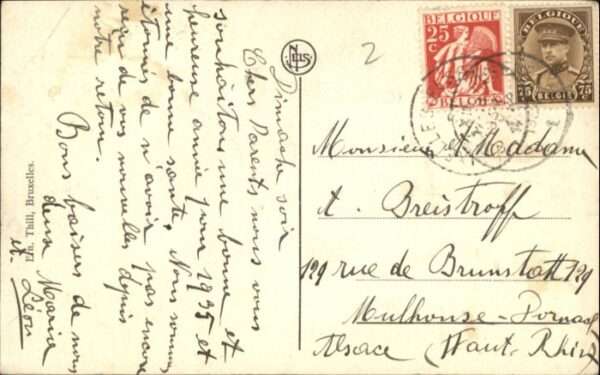 Dimanche soir
Chers Parents nous vous
souhaitons une bonne et
heureuse année pour 1935 et
une bonne santé. Nous sommes
étonnés de n'avoir pas encore
reçu de vos nouvelles depuis
notre retour.
Bons baisers de nous
deux Maria
et Léon
Ern. Thill, Bruxelles.
NELS
2
BELGIQUE
25
c
BELGIË
BELGIQUE
75c
75c
BELGIË
Monsieur et Madame
A. Breistroff
129 rue de Brunstatt 129
Mulhouse - Dornach
Alsace (Haut-Rhin)